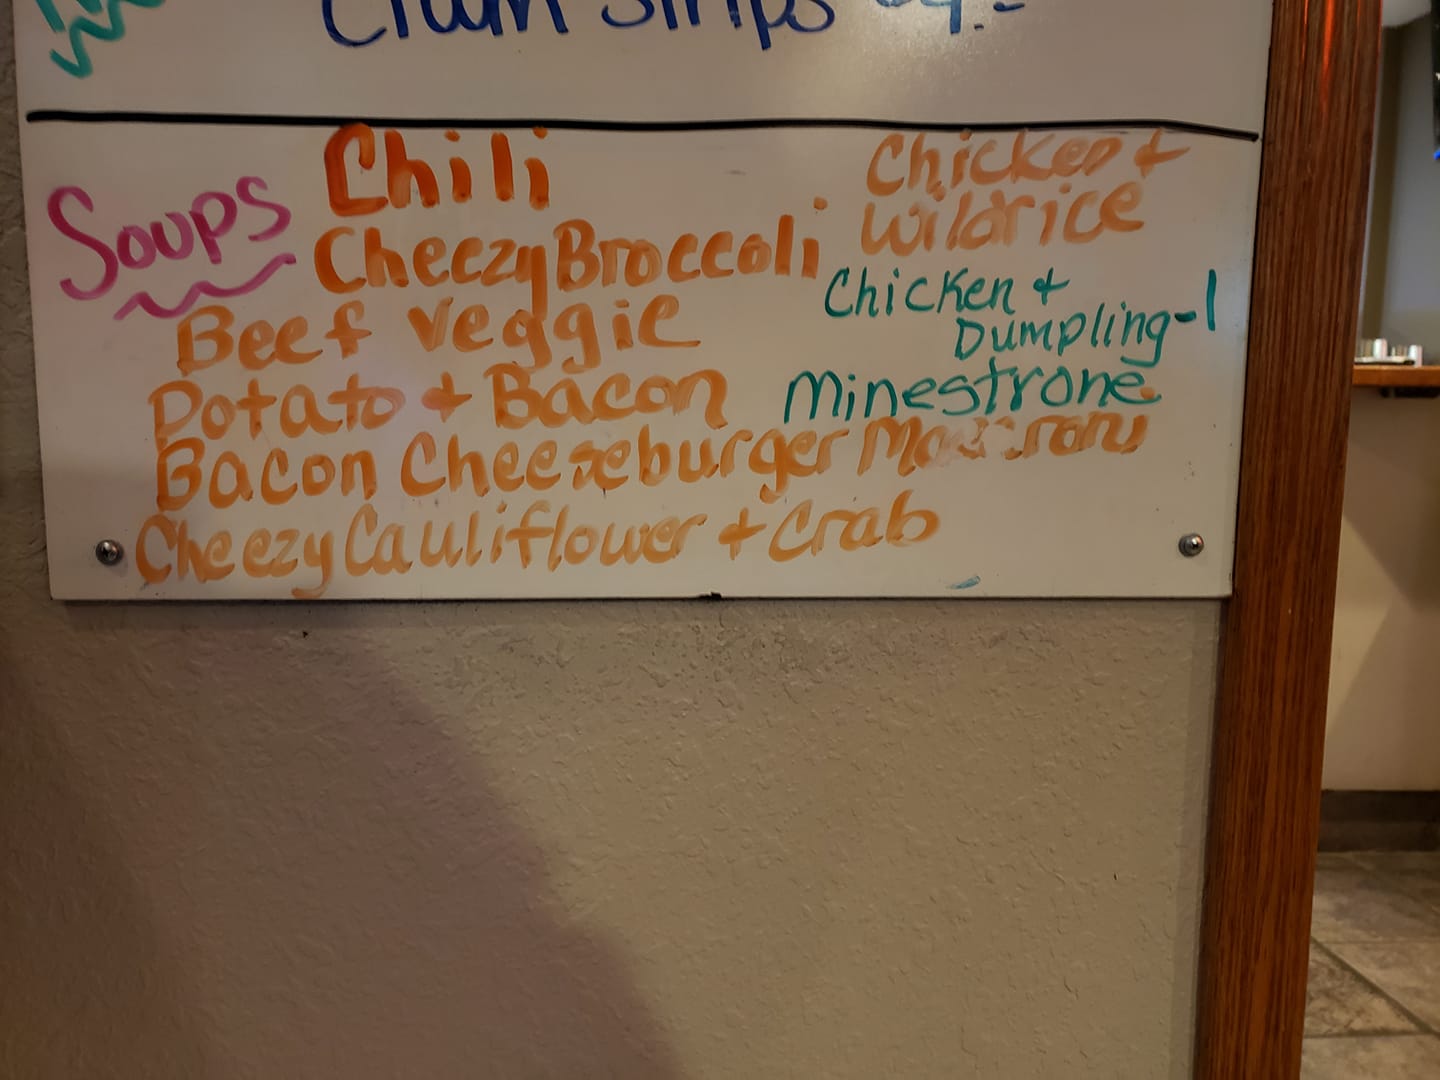 Clam Strips
Soups
Chili
Cheezy Broccoli
Beef Veggie
Potato + Bacon
Bacon Cheeseburger Macaroni
Cheezy Cauliflower + Crab
Chicken +
Wildrice
Chicken +
Dumpling-1
Minestrone